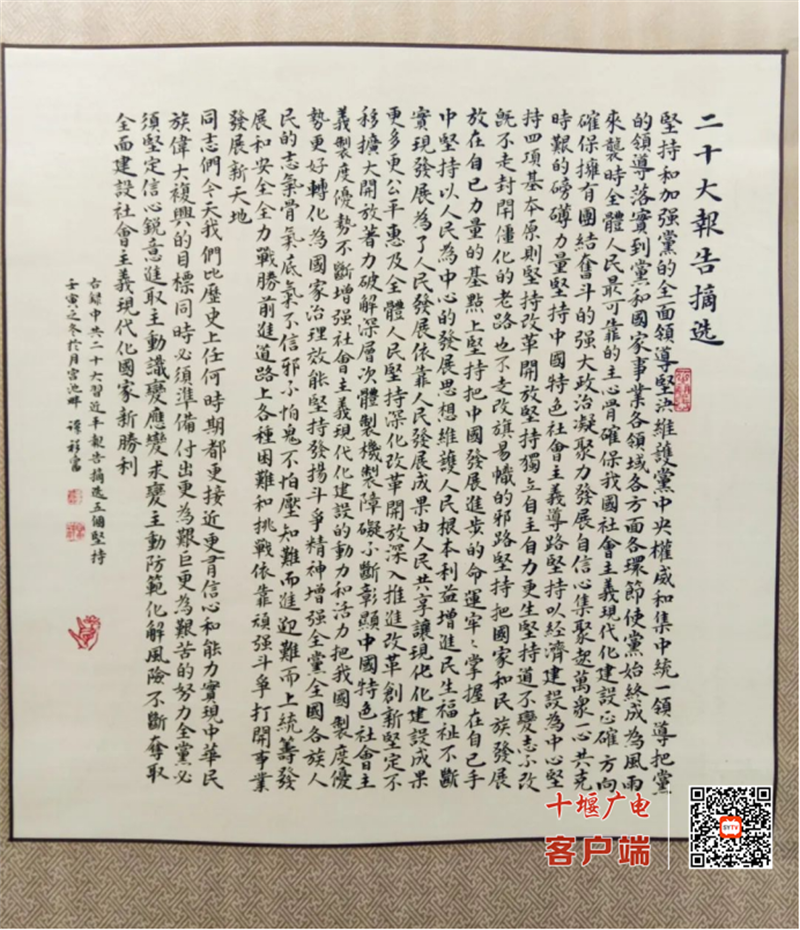 二十大報告摘选
堅持和加强黨的全面領導堅決維護黨中央權威和集中統一領導把黨
的領導落實到黨和國家事業各領域各方面各環節使黨始終成為風雨
來襲時全體人民最可靠的主心骨確保我國社會主義現代化建設正確方向
確保擁有團結奮斗的强大政治凝聚力發展自信心集聚起萬衆一心共克
時艱的磅礴力量堅持中國特色社會主義導路堅持以經濟建設為中心堅
持四項基本原則堅持改革開放堅持獨立自主自力更生堅持道不變志不改
既不走封閉僵化的老路也不走改旗易幟的邪路堅持把國家和民族發展
放在自己力量的基點上堅持把中國發展進步的命運牢々掌握在自己手
中堅持以人民為中心的發展思想維護人民根本利益增進民生福祉不斷
實現發展為了人民發展依靠人民發展成果由人民共享讓現代化建設成果
更多更公平惠及全體人民堅持深化改革開放深入推進改革創新堅定不
移擴大開放著力破解深層次體製機製障礙不斷彰顯中國特色社會主
義製度優勢不斷增强社會主義現代化建設的動力和活力把我國製度優
勢更好轉化為國家治理效能堅持發揚斗爭精神增强全黨全國各族人
民的志氣骨氣底氣不信邪不怕鬼不怕壓知難而進迎難而上統籌發
展和安全全力戰勝前進道路上各種困難和挑戰依靠頑强斗爭打開事業
發展新天地
同志們今天我們比歷史上任何時期都更接近更有信心和能力實現中華民
族偉大複興的目標同時必須準備付出更為艱巨更為艱苦的努力全黨必
須堅定信心鋭意進取主動識變應變求變主動防範化解風險不斷奪取
全面建設社會主義現代化國家新勝利
右録中共二十大習近平報告摘选五個堅持
壬寅之冬於月宮池畔
十堰广电
客户端
SYTV